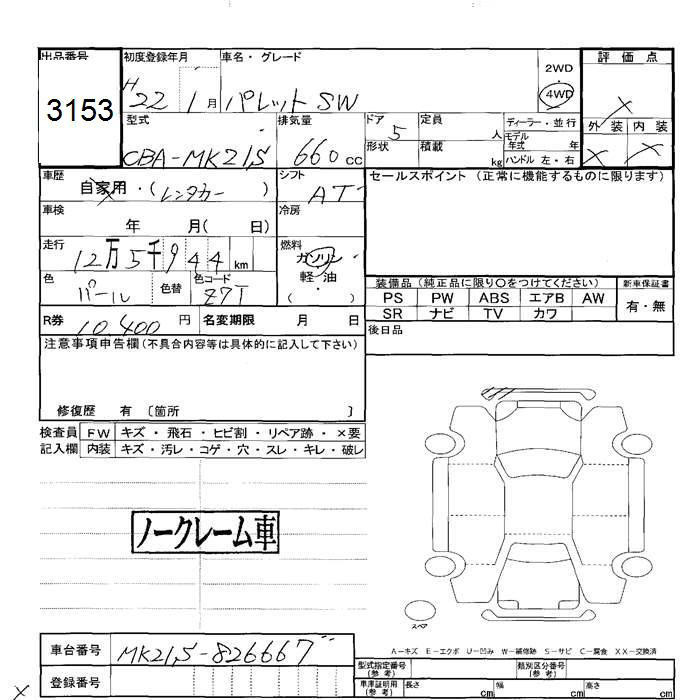 出品番号 初度登録年月 車名・グレード 評価点
3153 H22 1月 パレットSW 2WD 4WD ×
型式 排気量 ドア 定員 ディーラー・並行 外装 内装
CBA-MK21S 660cc 5 人 モデル年式 年 × ×
形状 積載 kg ハンドル 左・右
車歴 自家用・(レンタカー) シフト AT セールスポイント (正常に機能するものに限ります)
車検 年 月( 日) 冷房
走行 12万5千944km 燃料 ガソリン・軽油 ( )
色 パール 色替 色コード Z7T
装備品 (純正品に限り〇をつけてください) 新車保証書
PS PW ABS エアB AW 有・無
SR ナビ TV カワ
R券 10,400円 名変期限 月 日 後日品
注意事項申告欄(不具合内容等は具体的に記入して下さい)
修復歴 有 〔箇所 〕
検査員 FW キズ・飛石・ヒビ割・リペア跡・×要
記入欄 内装 キズ・汚レ・コゲ・穴・スレ・キレ・破レ
ノークレーム車
スペア
A−キズ E−エクボ U−凹み W−補修跡 S−サビ C−腐食 XX−交換済
車台番号 MK21S-826667
登録番号
型式指定番号(参考) 類別区分番号(参考)
車庫証明用(参考) 長さ cm 幅 cm 高さ cm
×